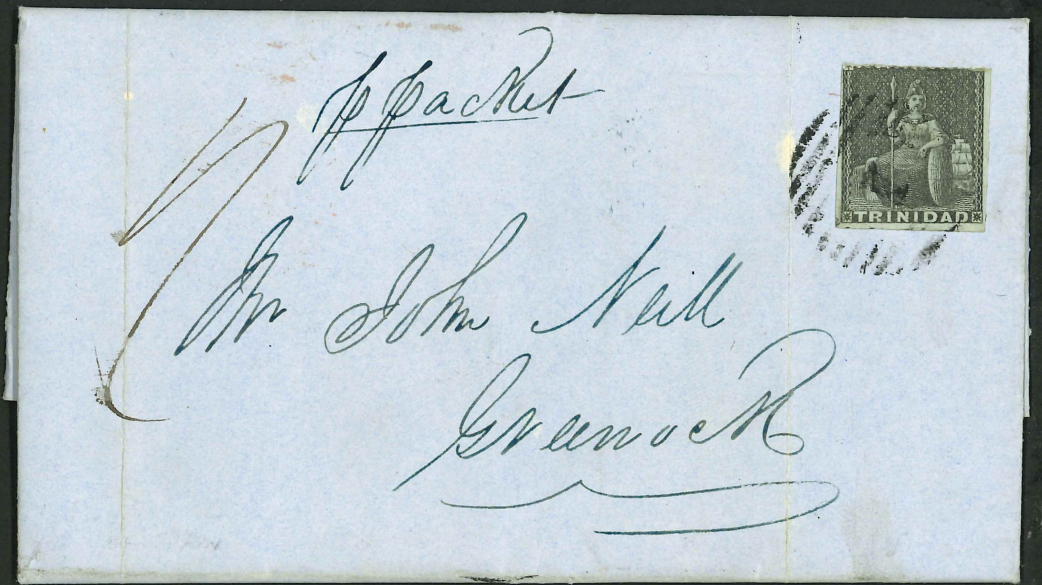 p Packet
TRINIDAD
1
Mr John Neill
Greenock